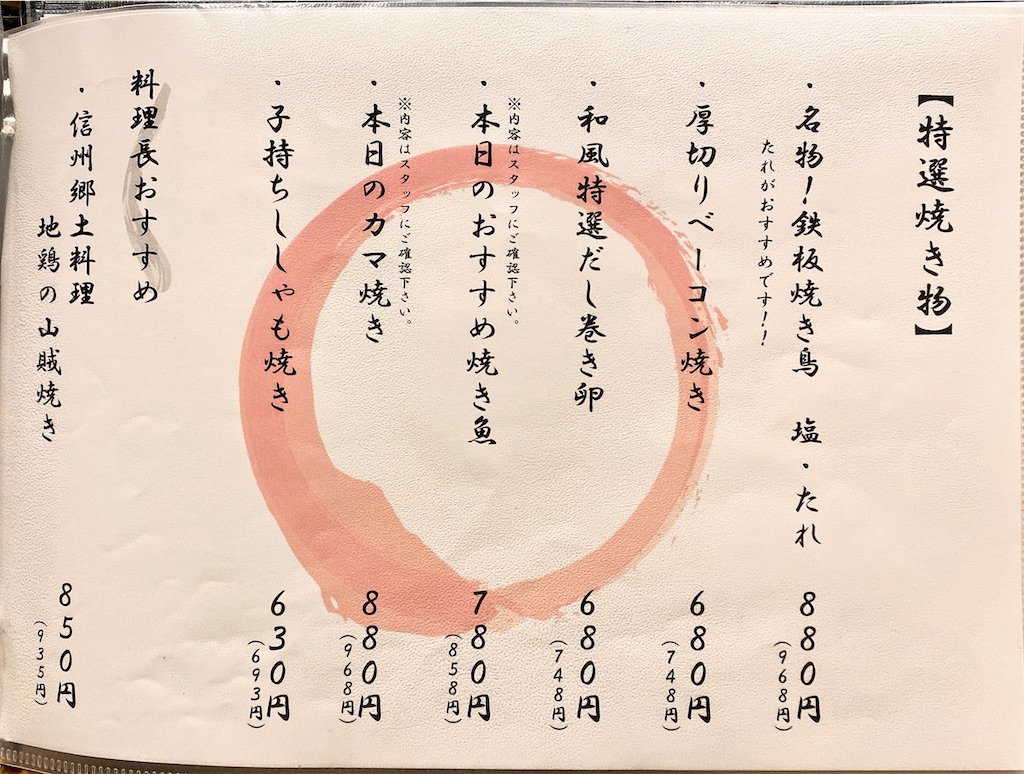 【特選焼き物】
・名物！鉄板焼き鳥　塩・たれ
880円
(968円)
たれがおすすめです！！
・厚切りベーコン焼き
680円
(748円)
・和風特選だし巻き卵
680円
(748円)
・本日のおすすめ焼き魚
780円
(858円)
※内容はスタッフにご確認下さい。
・本日のカマ焼き
880円
(968円)
※内容はスタッフにご確認下さい。
・子持ちししゃも焼き
630円
(693円)
料理長おすすめ
・信州郷土料理
地鶏の山賊焼き
850円
(935円)